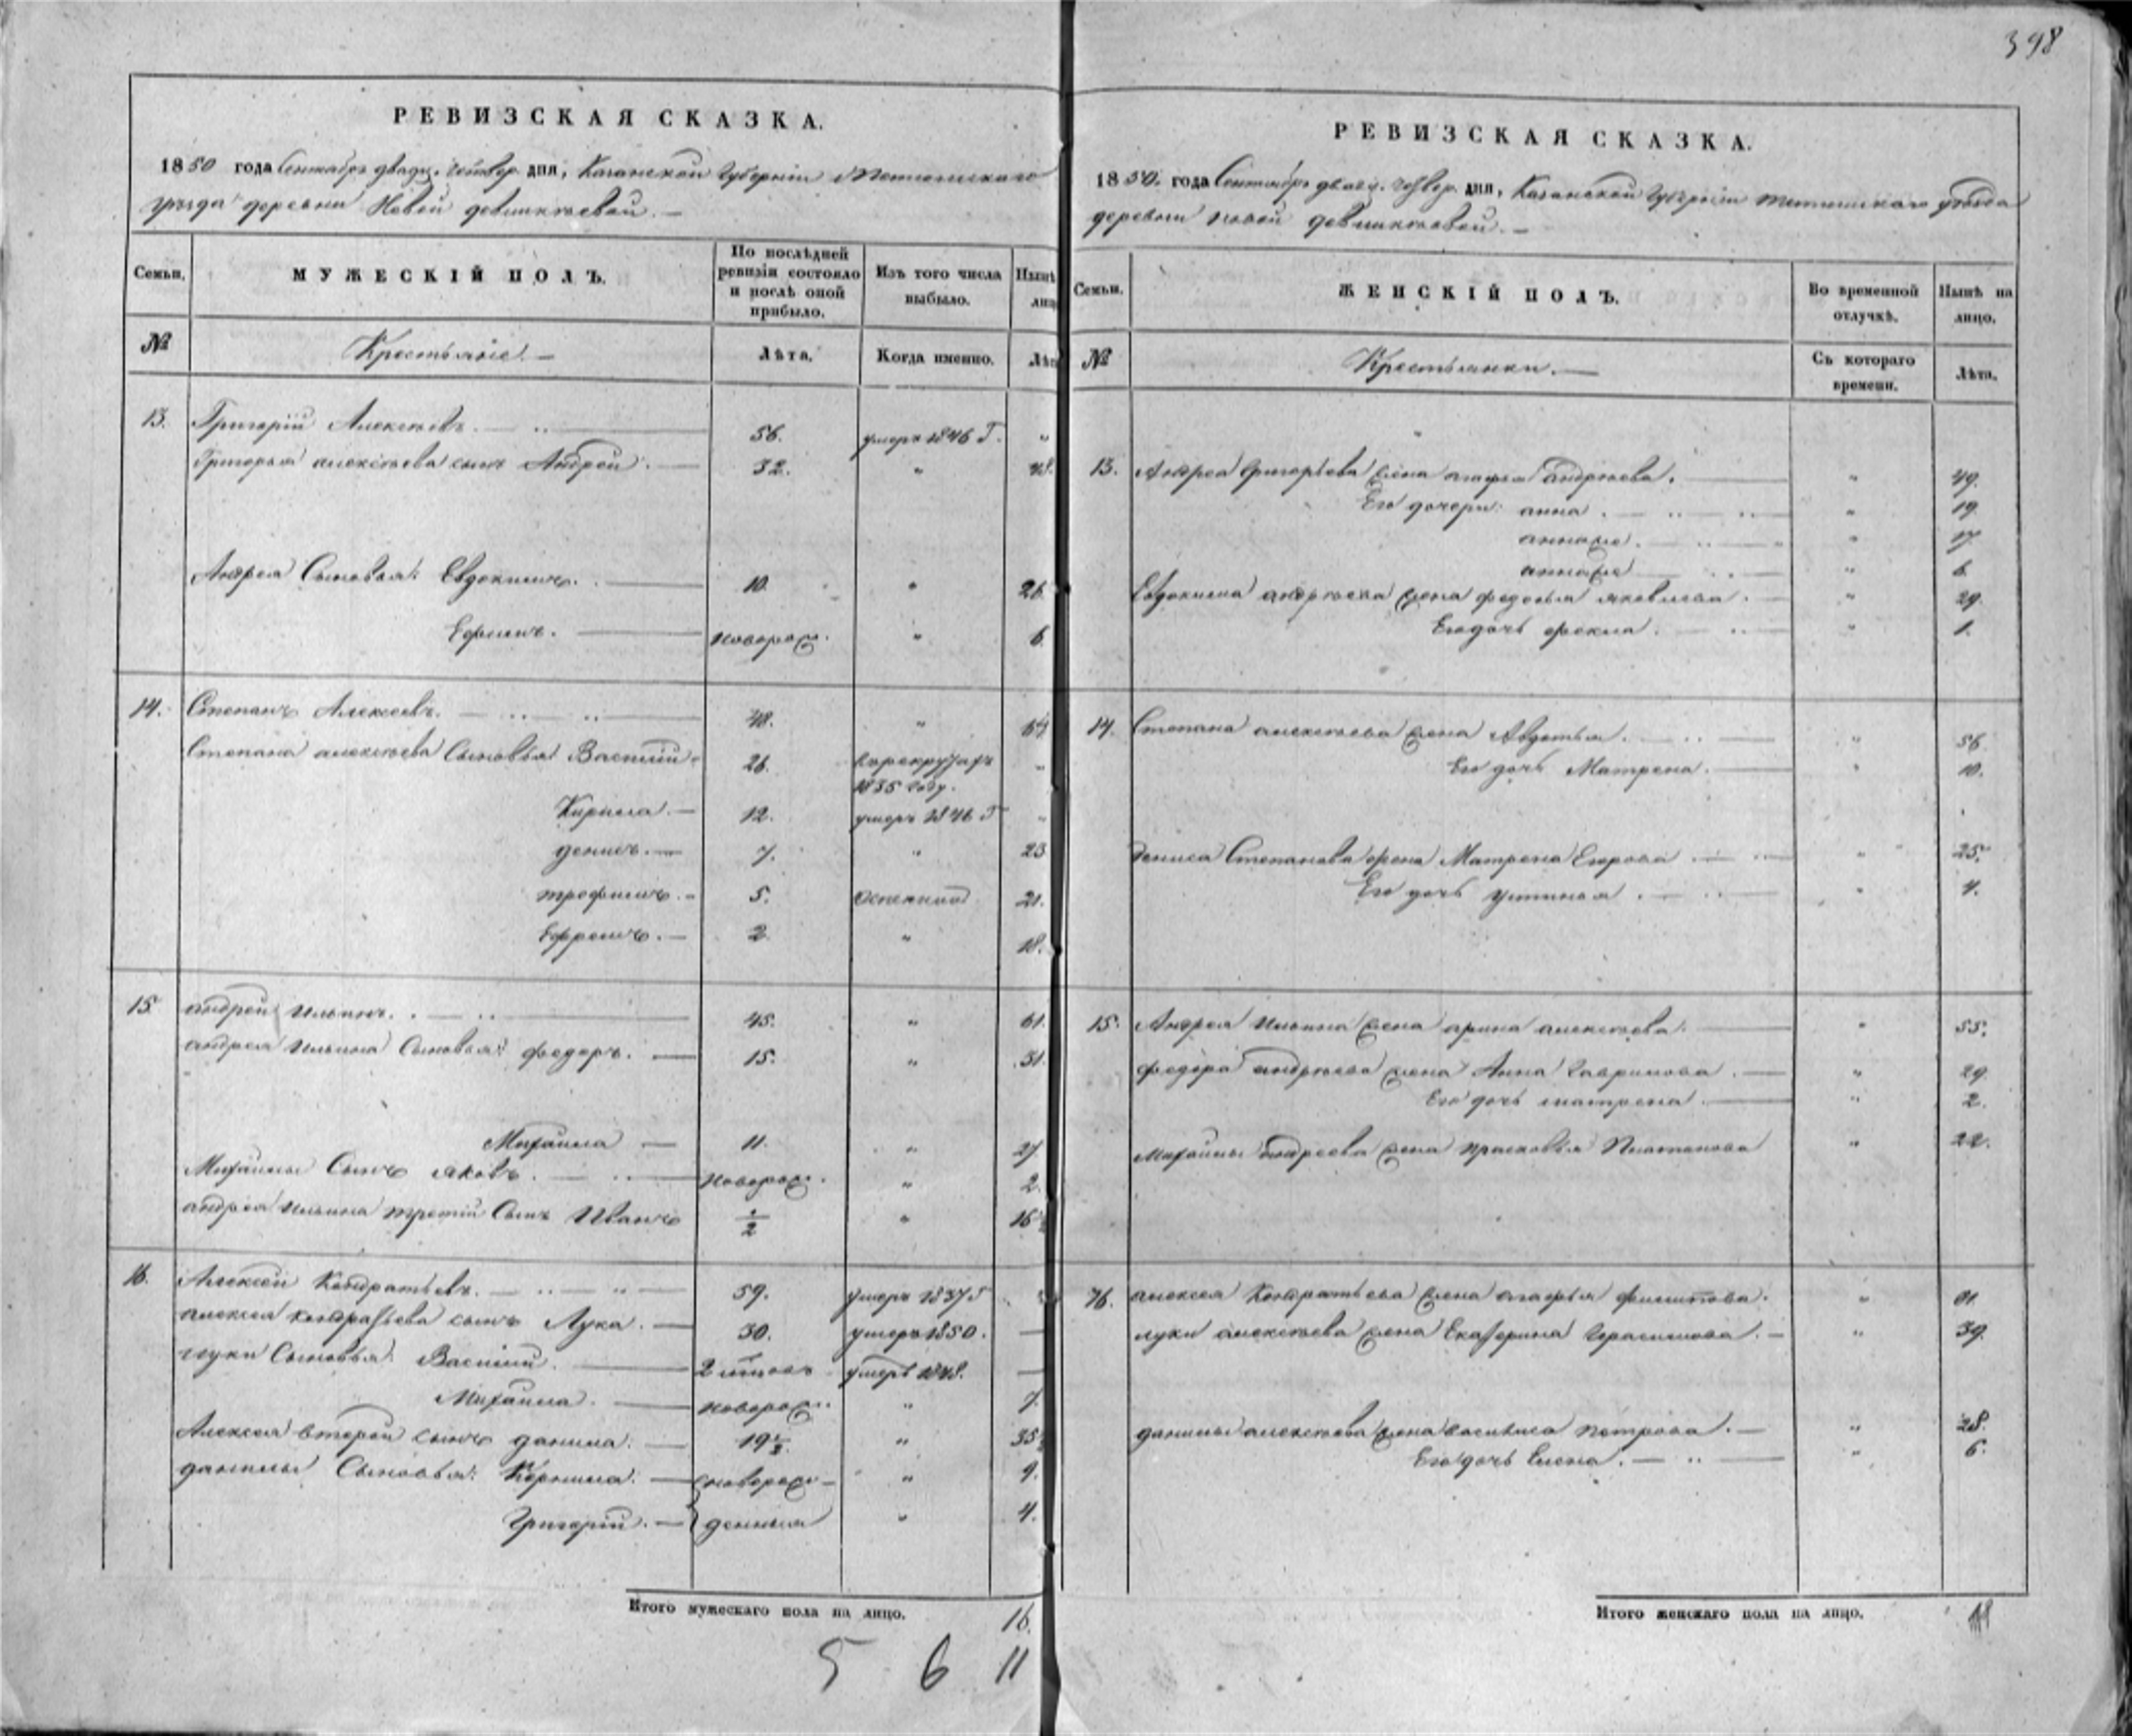 398
РЕВИЗСКАЯ СКАЗКА.
1850 года Сентября двадц. четвер. дня, Казанской Губерніи
уезда деревни Новой
Семьи. МУЖЕСКІЙ ПОЛЪ. По послѣдней ревизіи состояло и послѣ оной прибыло. Изъ того числа выбыло. Нынѣ
№ Крестьяне. Лѣта. Когда именно.
13. Григорій Алексѣевъ. 56. умеръ 1846 г. "
Григорья алексѣева сынъ Андрей. 32. " 48.
Андрея Сыновья: Евдокимъ. 10. " 26
Ефимъ. новорож. " 6
14. Степанъ Алексеевъ. 48. " 64
Степана алексѣева Сыновья Василій 26. 1835 году. "
Кирила. 12. умеръ 1846 г "
денисъ. 7. " 23
трофимъ. 5. 21.
Ефремъ. 2 " 18.
15 андрей Ильинъ. 45. " 61.
андрея Ильина Сыновья: федоръ. 15. " 31.
Михаила 11. " 27
Михаилы Сынъ яковъ. новорож. " 2.
андрея Ильина третій Сынъ Иванъ 1/2 " 16
16. Алексей Кондратьевъ. 59. умеръ 1837 г
алексея кондратьева сынъ Лука. 30. умеръ 1850. —
луки Сыновья: Василій. 2 умеръ 1848. —
Михаила. новорож. " 7.
Алексея второй сынъ данила. 19 1/2. " 35
данилы Сыновья: Корнила. новорож- " 9.
Григорій. денныя " 4.
Итого мужескаго пола на лицо. 16.
5 6 11
РЕВИЗСКАЯ СКАЗКА.
1850. года Сентября двадц. четвер. дня, Казанской Губерніи уѣзда
деревни новой
Семьи. ЖЕНСКІЙ ПОЛЪ. Во временной отлучкѣ. Нынѣ на лицо.
№ Крестьянки. Съ котораго времени. Лѣта.
13. Андрея Григорьева жена андрѣева. " 49.
Его дочери: анна. " 19.
аннаже. " 17.
аннаже " 6.
Евдокима андрѣева жена федосья яковлева. " 29.
Его дочь фекла. " 1.
14. Степана алексѣева жена Авдотья. " 56
Его дочь Матрена. " 10.
Дениса Степанова жена Матрена Егорова " 25.
Его дочь устинья. " 4.
15. Андрея Ильина жена арина алексѣева. " 55.
федора андрѣева жена Анна Гаврилова. " 29.
Его дочь матрена. " 2.
Михайлы андреева жена прасковья Платонова " 22.
16. алексея Кондратьева жена агафья филипова. " 61.
луки алексѣева жена Екатерина Герасимова. " 39.
данилы алексѣева жена василиса петрова. " 28.
Его дочь Елена. " 6.
Итого женскаго пола на лицо.